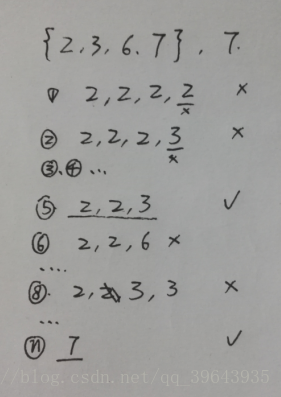 {2,3,6,7}, 7.
① 2, 2, 2, 2 ×
×
② 2, 2, 2, 3 ×
×
③、④ ...
⑤ 2, 2, 3 ✓
⑥ 2, 2, 6 ×
....
⑧. 2, 3, 3 ×
...
ⓝ 7 ✓
//blog.csdn.net/qq_39643935